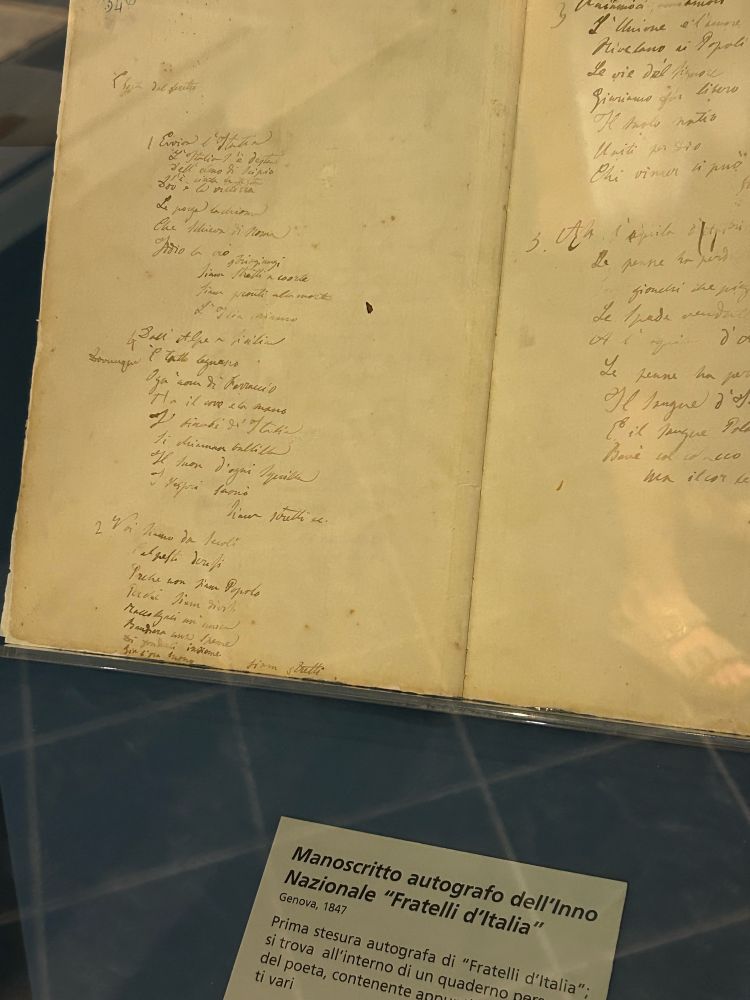 1 Evviva l'Italia
L'Italia s'è desta
Dell'elmo di Scipio
S'è cinta la testa
Dov'è la vittoria
Le porga la chioma
Che schiava di Roma
Iddio la creò
Stringiamci
siam stretti a coorte
Siam pronti alla morte
L'Italia chiamò
4 Dall'Alpe a Sicilia
Dovunque È tutto Legnano
Ogni uom di Ferruccio
Ha il core e la mano
I bimbi d'Italia
Si chiaman Balilla
Il suon d'ogni squilla
I Vespri suonò
Siam stretti ec.
2 Noi siamo da secoli
Calpesti derisi
Perchè non siam Popolo
Perchè siam divisi
Raccolgaci un'unica
Bandiera una speme
Di fonderci insieme
Già l'ora suonò
siam stretti
3
L'Unione e l'amore
Rivelano ai Popoli
Le vie del Signore
Giuriamo far libero
Il suolo natio
Uniti per Dio
Chi vincer ci può
5. Ah l'aquila
Le penne ha perd
giunchi che pieg
Le Spade vendut
A l'aquila d'A
Le penne ha per
Il sangue d'I
E il sangue Pola
Bevè col cosacco
Ma il cor
Manoscritto autografo dell'Inno
Nazionale "Fratelli d'Italia"
Genova, 1847
Prima stesura autografa di "Fratelli d'Italia";
si trova all'interno di un quaderno pers
del poeta, contenente appunti
ti vari